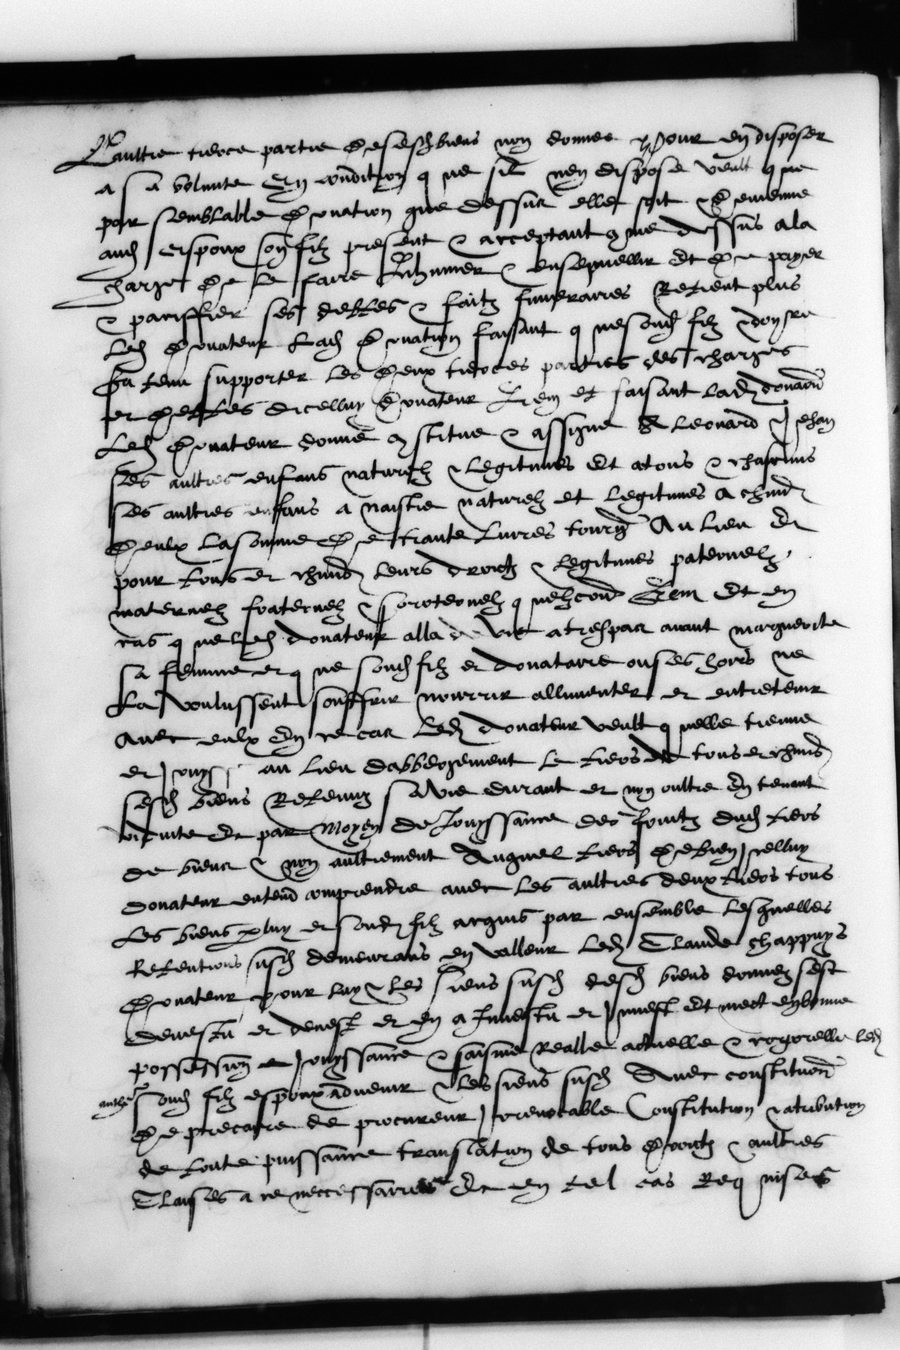 Laultre tierce partie de sesd biens non donnee pour en disposer
a sa volunte Et condition que sil nen dispose veult que
par semblable donation que dessus elle soit & devienne
aud espoux son filz present & acceptant que dessus a la
charge de le faire Inhumer & ensepvellir Et de payer
& paciffier ses debtes & faitz funeraires Retient plus
Led donateur Lad donation faisant que sond filz
sera tenu supporter les deux tierces parties des charges
et debtes dicelluy donateur Item et faisant lad donaon
Led donateur donne constitue & assigne A Leonard & Jehan
ses aultres enfans naturelz & legitimes Et a tous & chascuns
ses aultres enfans a naistre naturelz et legitimes a chund
deulx La somme de trante Livres tourn Au lieu et
pour tous et chund leurs droictz & legitimes paternelz
maternelz fraternelz & sororernelz quelzconq Item Et en
cas que led donateur alla de vie a trespas avant marguerite
sa femme et que sond filz et donataire ou ses hoirs ne
La voulussent souffrir nourrir allimenter et entretenir
avec eulx En ce cas Led donateur veult quelle tienne
et Jouysse au lieu dabbergement Le tiers de tous et chund
sesd biens Retenuz sa vie durant et non oultre En tenant
viduite Et par moyen de Jouyssance des fruictz dud tiers
de biens & non aultrement Auquel tiers de bien Icelluy
donateur entend comprendre avec les aultres deux tiers tous
Les biens par luy et sond filz acquis par ensemble Lesquelles
Retentions susd demeurans en valleur Led Claude Chappuys
donateur pour luy & les siens susd desd biens donnez sest
devestu et devest et en a Investu et Investt Et mect en bonne
possession & Jouyssance & saisine Realle actuelle & corporelle led
anthe sond filz espoux advenir & les siens susd Avec constitution
de precaire de procureur Irrevocable Constitution & atribution
de toute puissance translation de tous droictz & aultres
Clauses a ce neccessaires Et en tel cas Requises